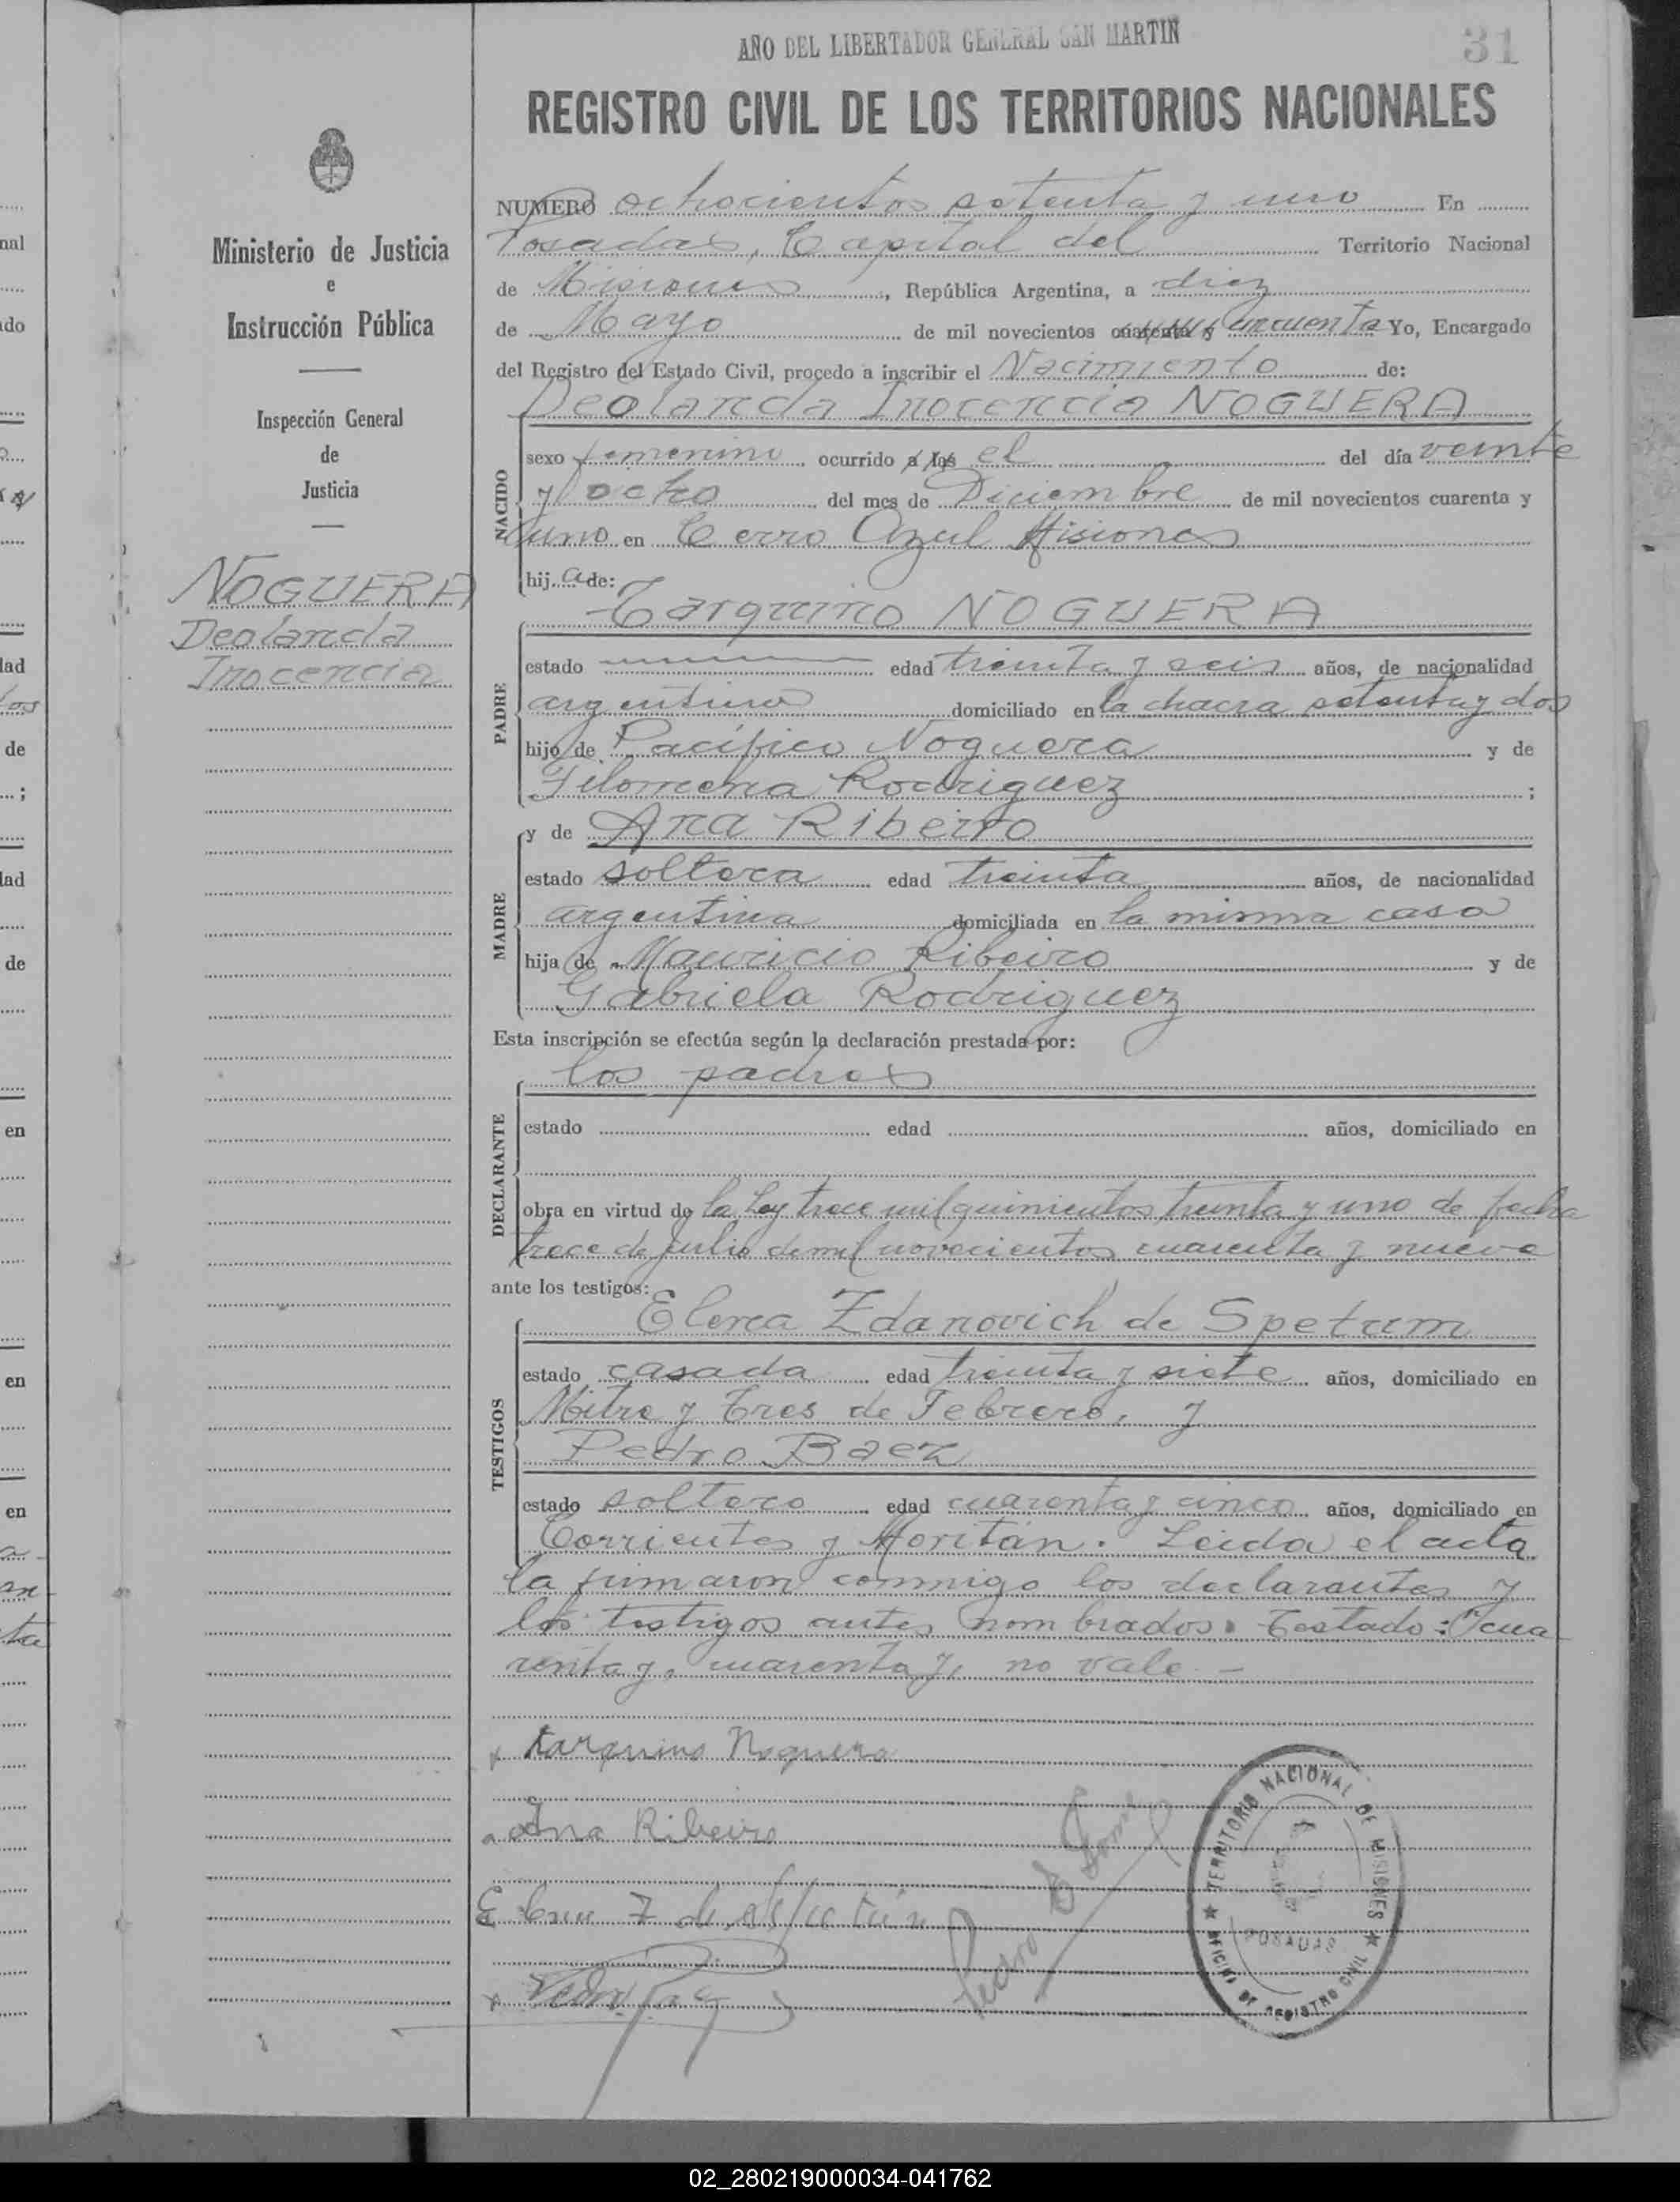 AÑO DEL LIBERTADOR GENERAL SAN MARTIN
31
REGISTRO CIVIL DE LOS TERRITORIOS NACIONALES
Ministerio de Justicia
e
Instrucción Pública
Inspección General
de
Justicia
NOGUERA
Deolanda
Inocencia
NUMERO ochocientos setenta y uno En
Posadas, Capital del Territorio Nacional
de Misiones, República Argentina, a diez
de Mayo de mil novecientos cuarenta y cincuenta Yo, Encargado
del Registro del Estado Civil, procedo a inscribir el Nacimiento de:
Deolanda Inocencia NOGUERA
NACIDO
sexo femenino ocurrido a las el del día veinte
y ocho del mes de Diciembre de mil novecientos cuarenta y
uno en Cerro Azul Misiones
hija de:
PADRE
Tarquino NOGUERA
estado edad treinta y seis años, de nacionalidad
argentino domiciliado en la chacra setenta y dos
hijo de Pacífico Noguera y de
Filomena Rodriguez ;
MADRE
y de Ana Ribeiro
estado soltera edad treinta años, de nacionalidad
argentina domiciliada en la misma casa
hija de Mauricio Ribeiro y de
Gabriela Rodriguez
Esta inscripción se efectúa según la declaración prestada por:
DECLARANTE
los padres
estado edad años, domiciliado en
obra en virtud de la Ley trece mil quinientos treinta y uno de fecha
trece de julio de mil novecientos cuarenta y nueve
ante los testigos:
TESTIGOS
Elena Zdanovich de Spetum
estado casada edad treinta y siete años, domiciliado en
Mitre y Tres de Febrero, y
Pedro Baez
estado soltero edad cuarenta y cinco años, domiciliado en
Corrientes y Moritán. Leida el acta
la firmaron conmigo los declarantes y
los testigos antes nombrados. Testado: "cua
renta y, cuarenta y, no vale. -
x Tarquino Noguera
Ana Ribeiro
Pedro
TERRITORIO NACIONAL DE MISIONES
POSADAS
OFICINA DE REGISTRO CIVIL
nal
ado
lad
de
;
lad
de
en
en
en
02_280219000034-041762